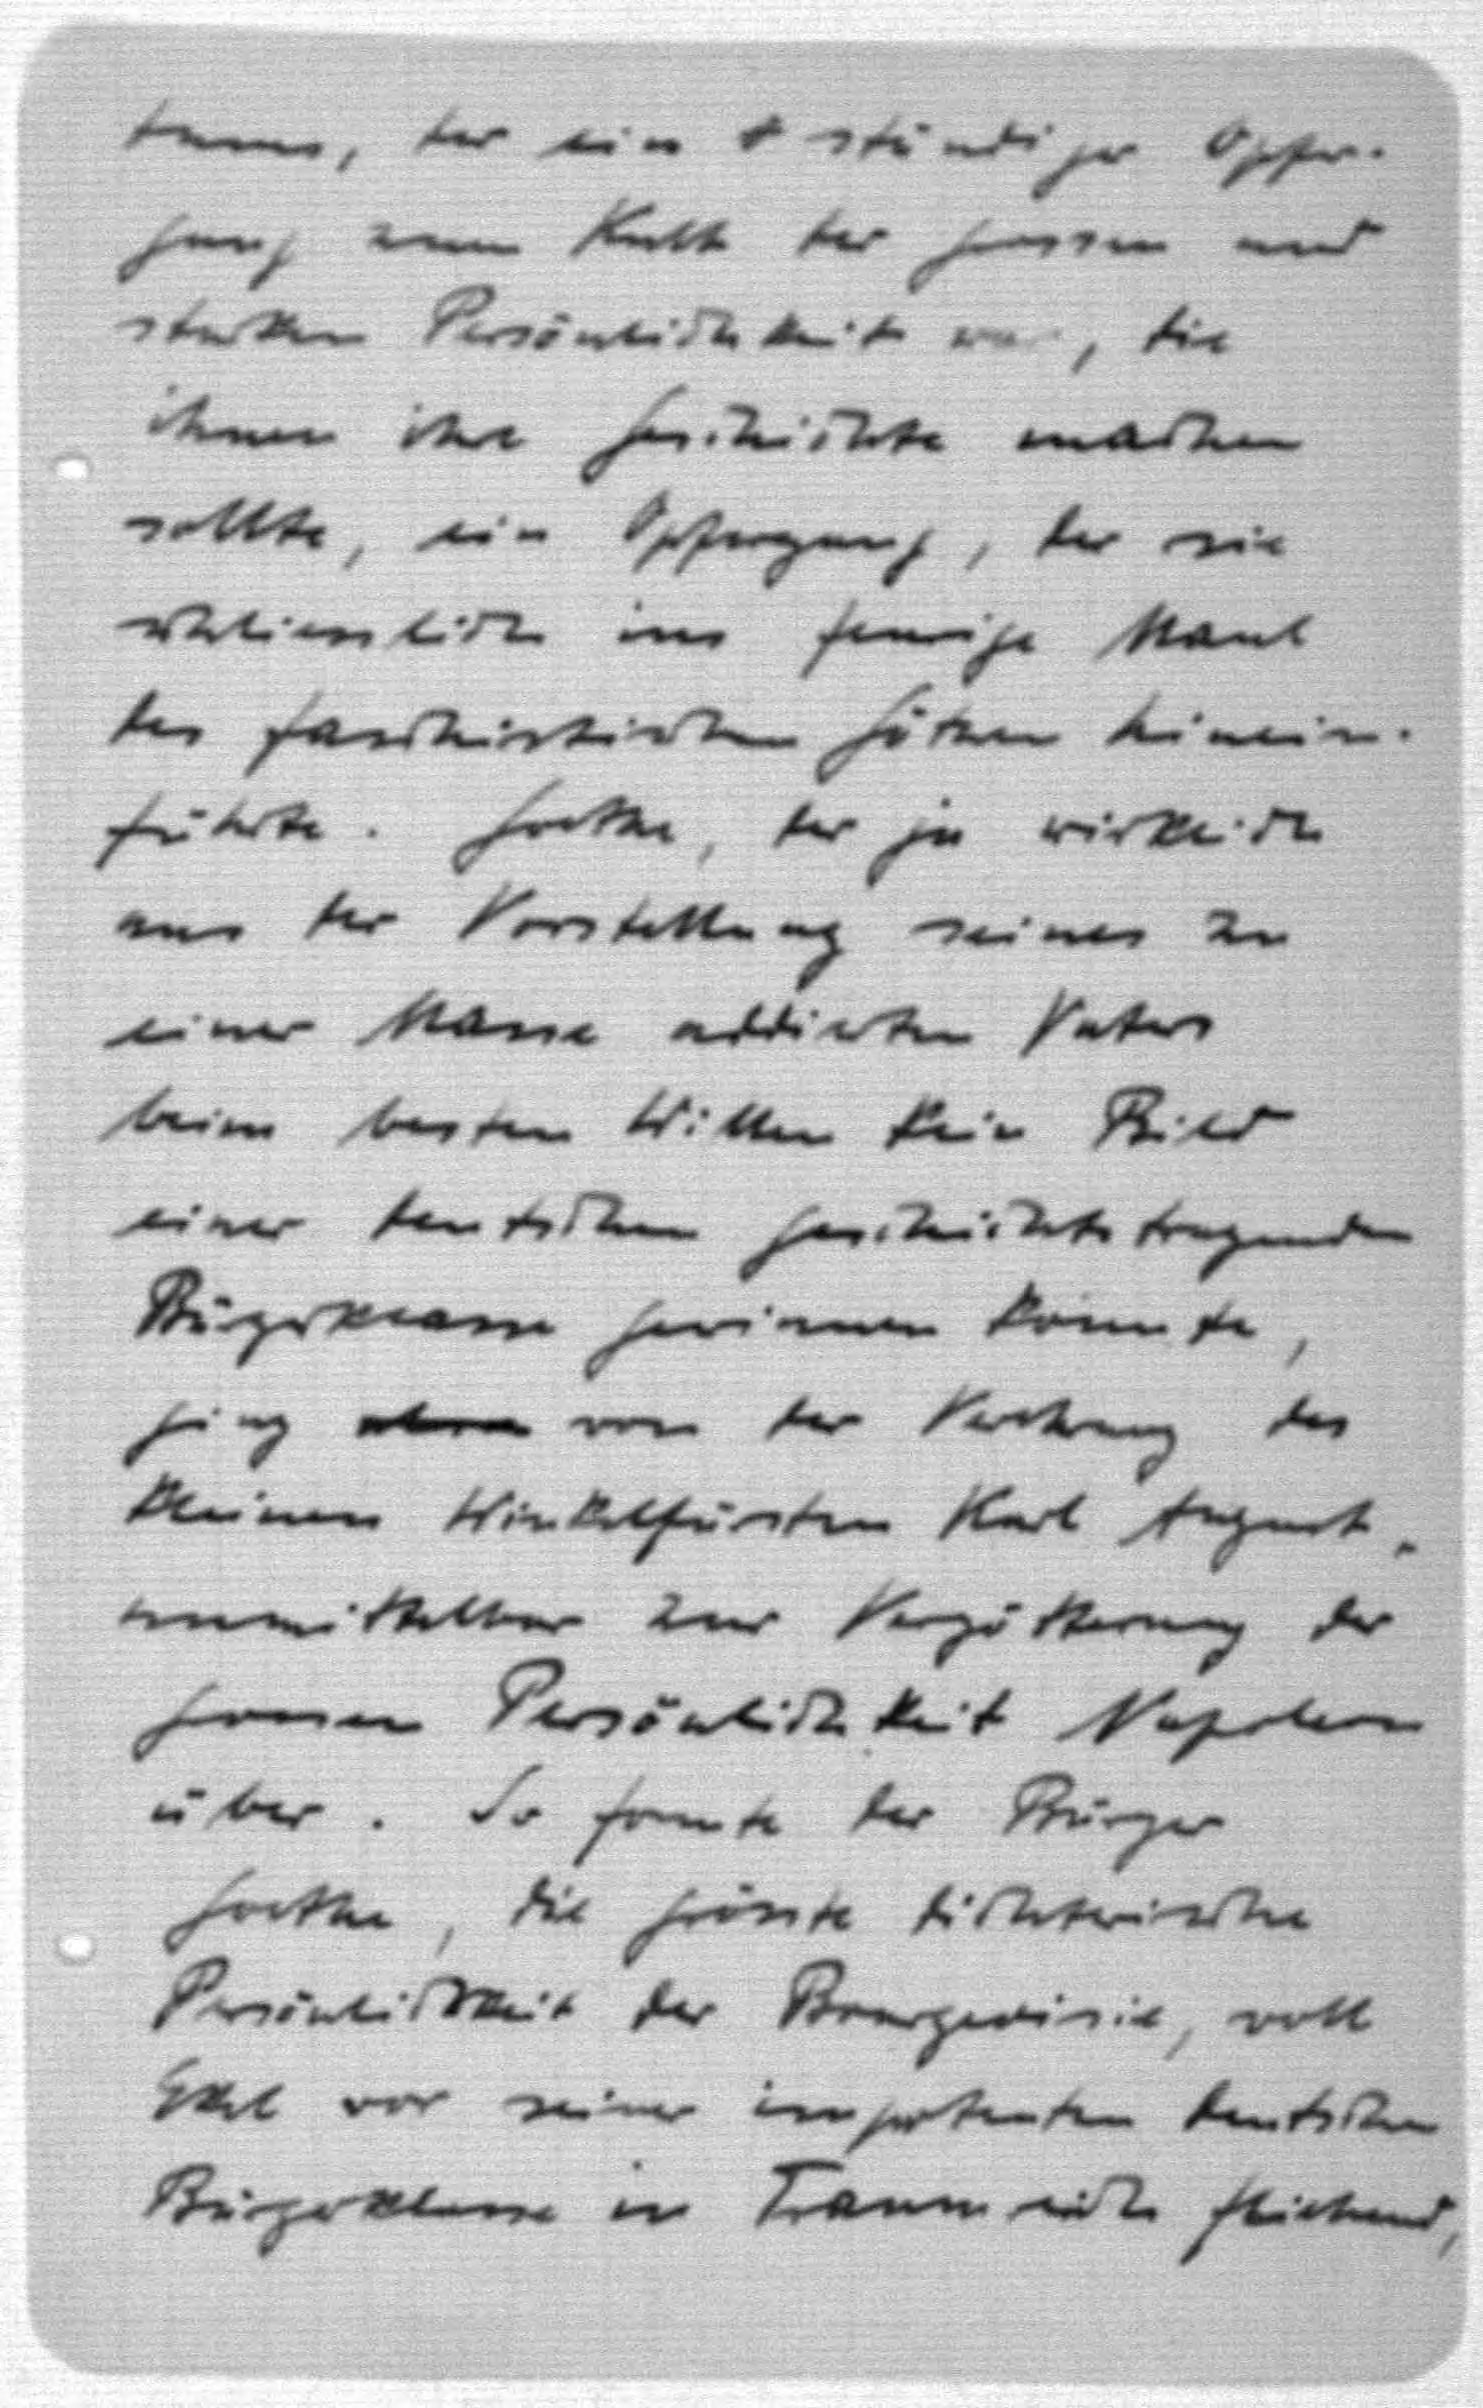 tums, der ein ständiger Opfer-
gang zum Kult der grossen und
starken Persönlichkeit war, die
ihnen ihre Geschichte machen
sollte, ein Opfergang, der sie
schliesslich ins feurige Maul
des faschistischen Götzen hinein-
führte. Goethe, der ja wirklich
aus der Vorstellung seines zu
einer Masse addierten Vaters
beim besten Willen kein Bild
einer deutschen geschichtstragenden
Bürgerklasse gewinnen konnte,
ging von der Verehrung des
kleinen Winkelfürsten Karl August
unmittelbar zur Vergötterung der
grossen Persönlichkeit Napoleon
über. So formte der Bürger
Goethe, die grösste dichterische
Persönlichkeit der Bourgeoisie, voll
Ekel vor seiner impotenten deutschen
Bürgerklasse in Traumreich fliehend,